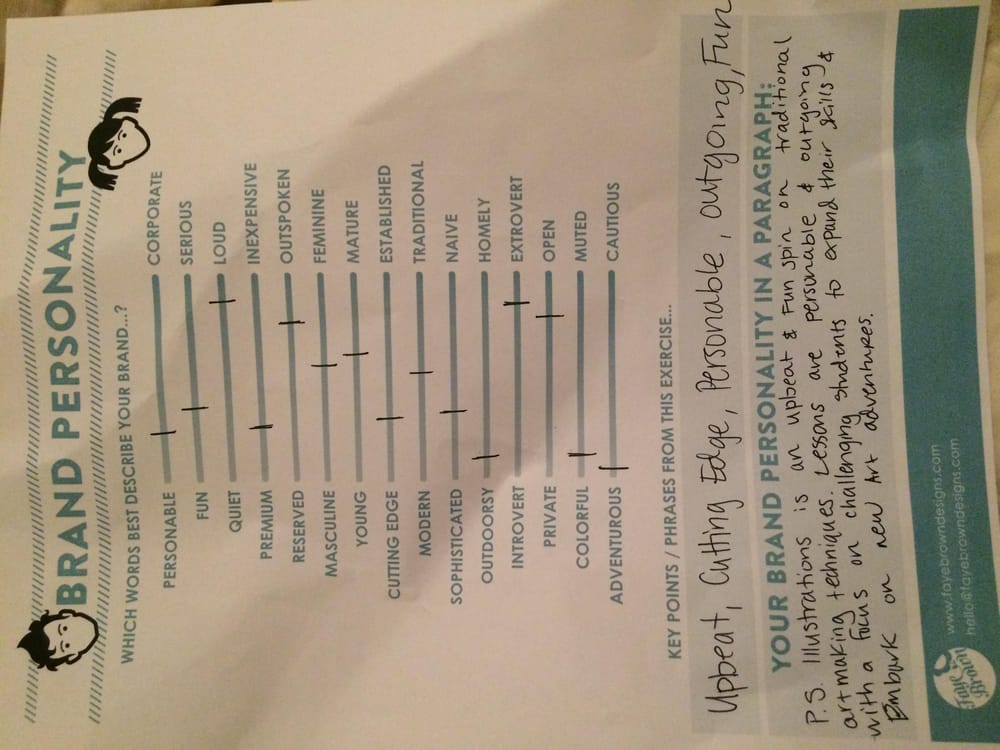 BRAND PERSONALITY
WHICH WORDS BEST DESCRIBE YOUR BRAND...?
PERSONABLE CORPORATE
FUN SERIOUS
QUIET LOUD
PREMIUM INEXPENSIVE
RESERVED OUTSPOKEN
MASCULINE FEMININE
YOUNG MATURE
CUTTING EDGE ESTABLISHED
MODERN TRADITIONAL
SOPHISTICATED NAIVE
OUTDOORSY HOMELY
INTROVERT EXTROVERT
PRIVATE OPEN
COLORFUL MUTED
ADVENTUROUS CAUTIOUS
KEY POINTS / PHRASES FROM THIS EXERCISE...
Upbeat, Cutting Edge, Personable, outgoing, Fun
YOUR BRAND PERSONALITY IN A PARAGRAPH:
P.S. Illustrations is an upbeat & Fun spin on traditional
artmaking techniques. Lessons are personable & outgoing
with a focus on challenging students to expand their skills &
Embark on new Art adventures.
Faye Brown
www.fayebrowndesigns.com
hello@fayebrowndesigns.com